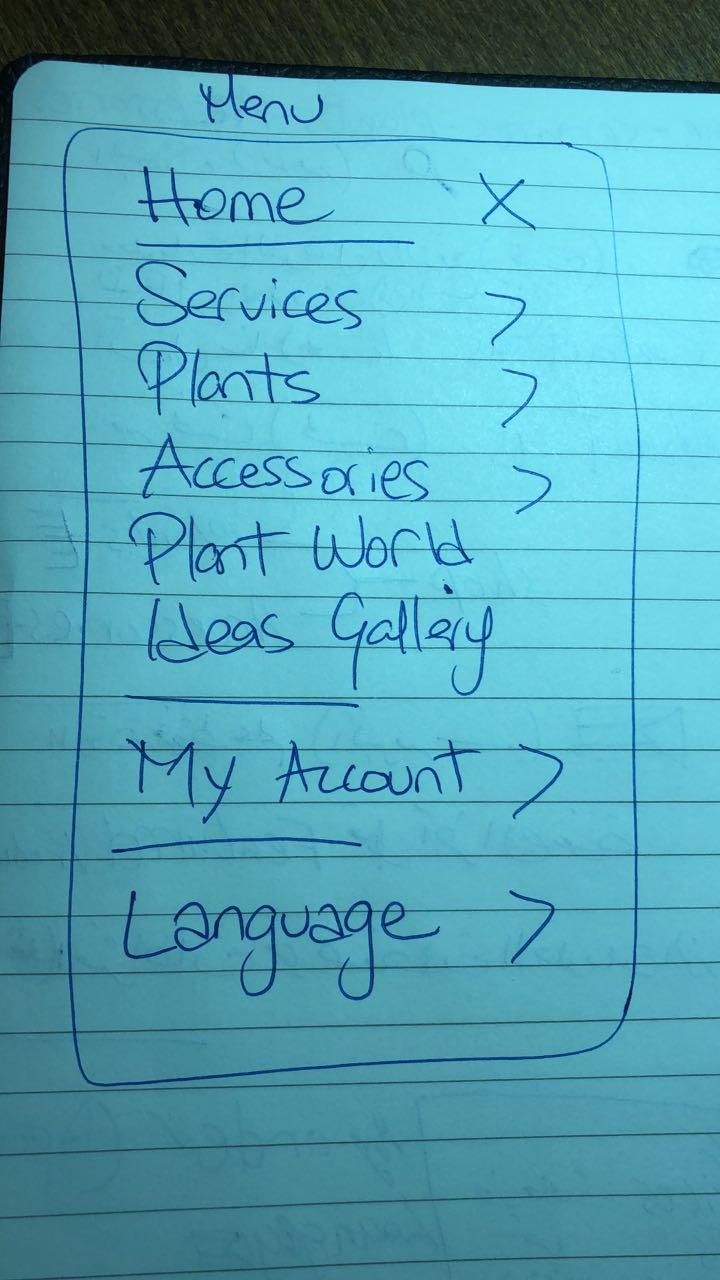 Menu
Home X
Services >
Plants >
Accessories >
Plant World
Ideas Gallery
My Account >
Language >